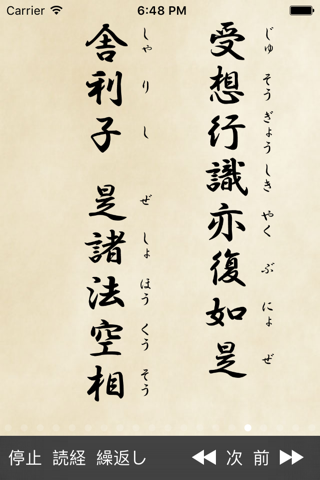 Carrier 6:48 PM
受想行識亦復如是
じゅ そう ぎょう しき やく ぶ にょ ぜ
舎利子 是諸法空相
しゃ り し ぜ しょ ほう くう そう
停止 読経 繰返し 次 前